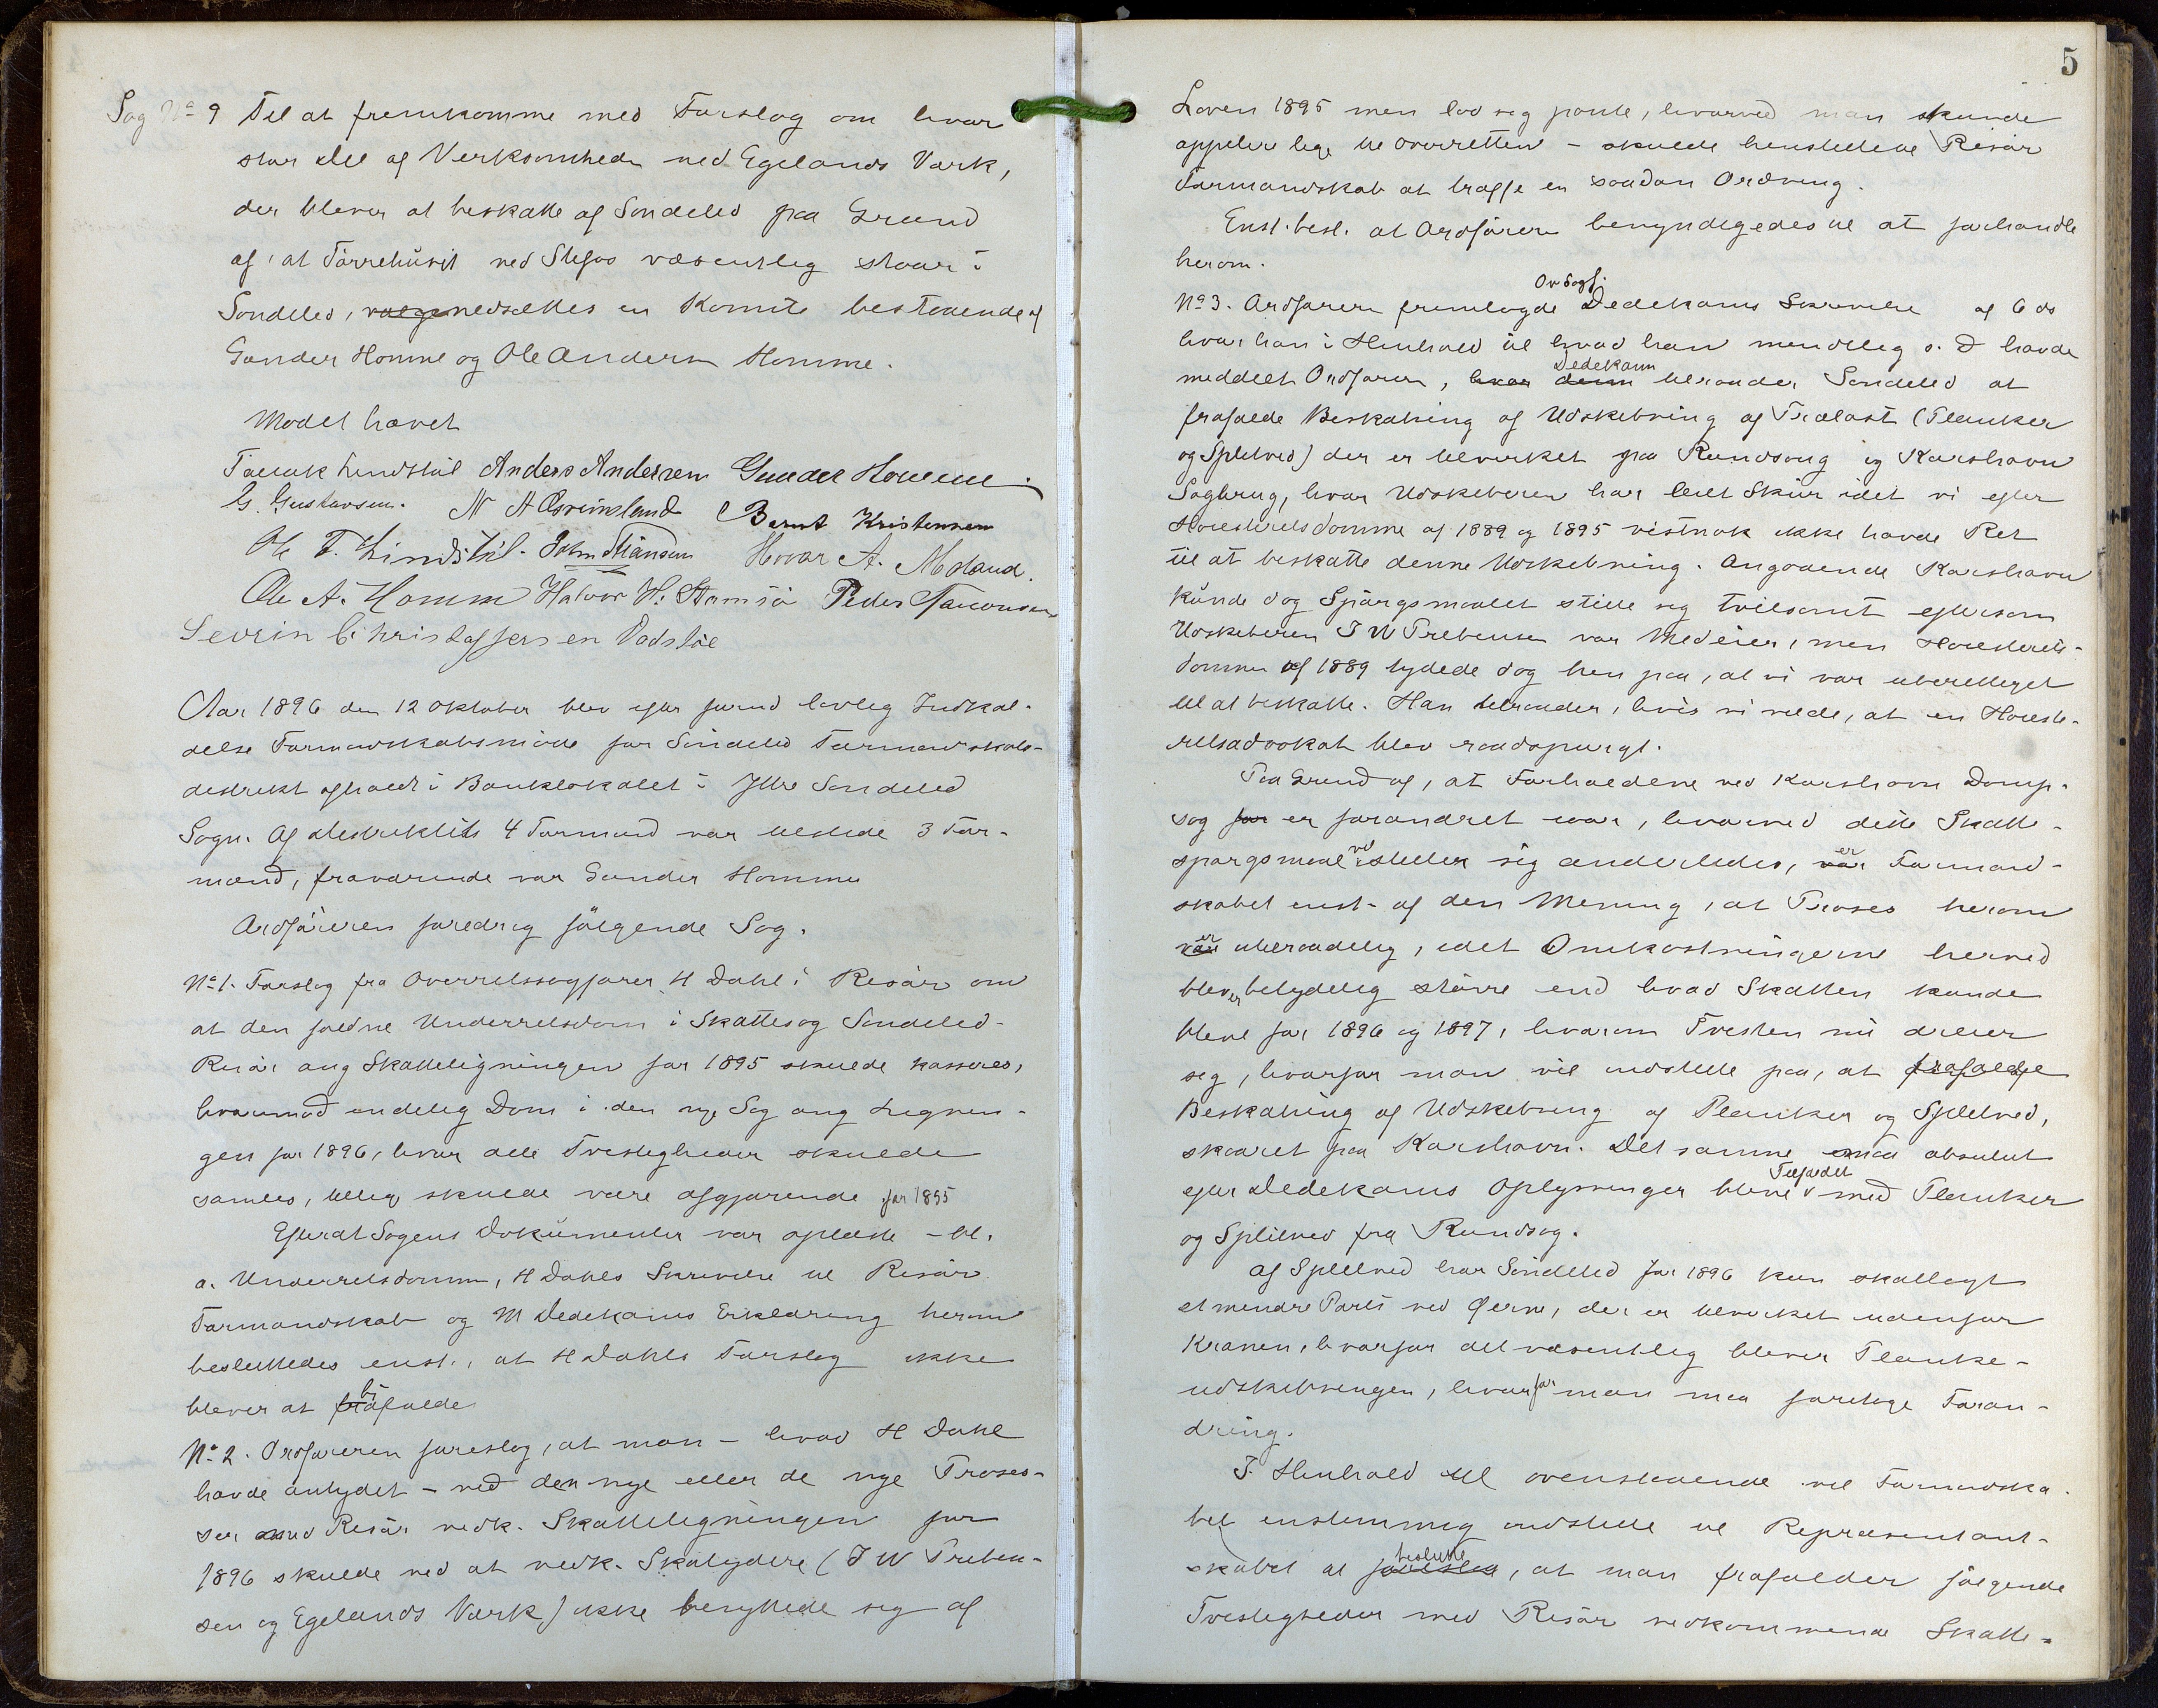 Sag No 9 Til at fremkomme med Forslag om hvor
stor Del af Verksomheden ved Egelands Værk,
der bliver at beskatte af Søndeled paa Grund
af, at Tørrehuset ved Stifos væsentlig staar i
Søndeled, vælge nedsættes en Komite bestaaende af
Gunder Homme og Ole Andersen Homme.
Mødet hævet
Tallak Lindstøl Anders Andersen Gunder Homme
G. Gustavsen. N A Espeland Bernt Kristensen
Ole T. Lindstøl. John Stiansen Hovar A. Moland.
Ole A. Homme Halvor H. Stamsø Peder
Sevrin Christoffersen Vadstøl
Aar 1896 den 12 Oktober blev efter forud lovlig Indkal-
delse Formandskabsmøde for Søndeled Formandskabs-
distrikt afholdt i Banklokalet i Ytre Søndeled
Sogn. Af Distriktets 4 Formænd var tilstede 3 For-
mænd, fraværende var Gunder Homme
Ordføreren foredrog følgende Sag.
No 1. Forslag fra Overretssagfører H Dahl i Risør om
at den faldne Underretsdom i Skattesag Søndeled-
Risør ang Skatteligningen for 1895 skulde kasseres,
hvorimod endelig Dom i den nye Sag ang Lignin-
gen for 1896, hvor alle Tvistigheder skulde
samles, tillige skulde være afgjørende for 1895
Efterat Sagens Dokumenter var oplæste - bl.
a. Underretsdommen, H Dahls Skrivelse til Risør
Formandskab og M Dedekams Erklæring herom
besluttedes enst., at H Dahls Forslag ikke
bliver at bifalde
No 2. Ordføreren foreslog, at man - hvad H Dahl
havde antydet - ved den nye eller de nye Proses-
ser mod Risør vedk. Skatteligningen for
1896 skulde ved at vedk. Skatydere (J W Preben-
sen og Egelands Værk) ikke benyttede sig af
5
Loven 1895 men lod sig pante, hvorved man kunde
appelere lige til Overretten - skulde henstillede Risør
Formandskab at træffe en saadan Ordning.
Enst. besl. at Ordføreren bemyndigedes til at forhandle
herom.
Ovsagf.
No 3. Ordføreren fremlagde Dedekams Skrivelse af 6 ds
hvor han i Henhold til hvad han mundtlig s. D havde
Dedekam
meddelt Ordføreren, hvor denne tilraader Søndeled at
frafalde Beskatning af Udskibning af Trælast (Planker
og Splitved) der er tilvirket paa Rundsaug og Karshavn
Sagbrug, hvor Udskiberen har leiet Skur idet vi efter
Høiesteretsdomme af 1889 og 1895 vistnok ikke havde Ret
til at beskatte denne Udskibning. Angaaende Karshavn
kunde dog Spørgsmaalet stille sig tvilsomt eftersom
Udskiberen J W Prebensen var Medeier, men Høiesterets-
dommen af 1889 tydede dog hen paa, at vi var uberettiget
til at beskatte. Han tilraader, hvis vi vilde, at en Høieste-
retsadvokat blev raadspurgt.
Paa Grund af, at Forholdene ved Karshavn Damp-
sag for er forandret iaar, hvorved dette Skatte-
spørgsmaal vil stiller sig anderledes, er var Formand-
skabet enst. af den Mening, at Proses herom
er var utilraadelig, idet Omkostningerne herved
bliver betydelig større end hvad Skatten kunde
blive for 1896 og 1897, hvorom Tvisten nu dreier
sig, hvorfor man vil indstille paa, at frafalde
Beskatning af Udskibning af Planker og Splitved,
skaaret paa Karshavn. Det samme maa absolut
Tilfældet
efter Dedekams Oplysninger blive med Planker
og Splitved fra Rundsag.
Af Splitved har Søndeled for 1896 kun skatlagt
et mindre Parti ved Øerne, der er tilvirket udenfor
Kranen, hvorfor det væsentlig bliver Planke-
udskibningen, hvorfor man maa foretage Foran-
dring.
I Henhold til ovenstaaende vil Formandska-
bet enstemmig indstille til Repræsentant-
beslutte
skabet at foreslaa, at man frafalder følgende
Tvistigheder med Risør vedkommende Skatte-